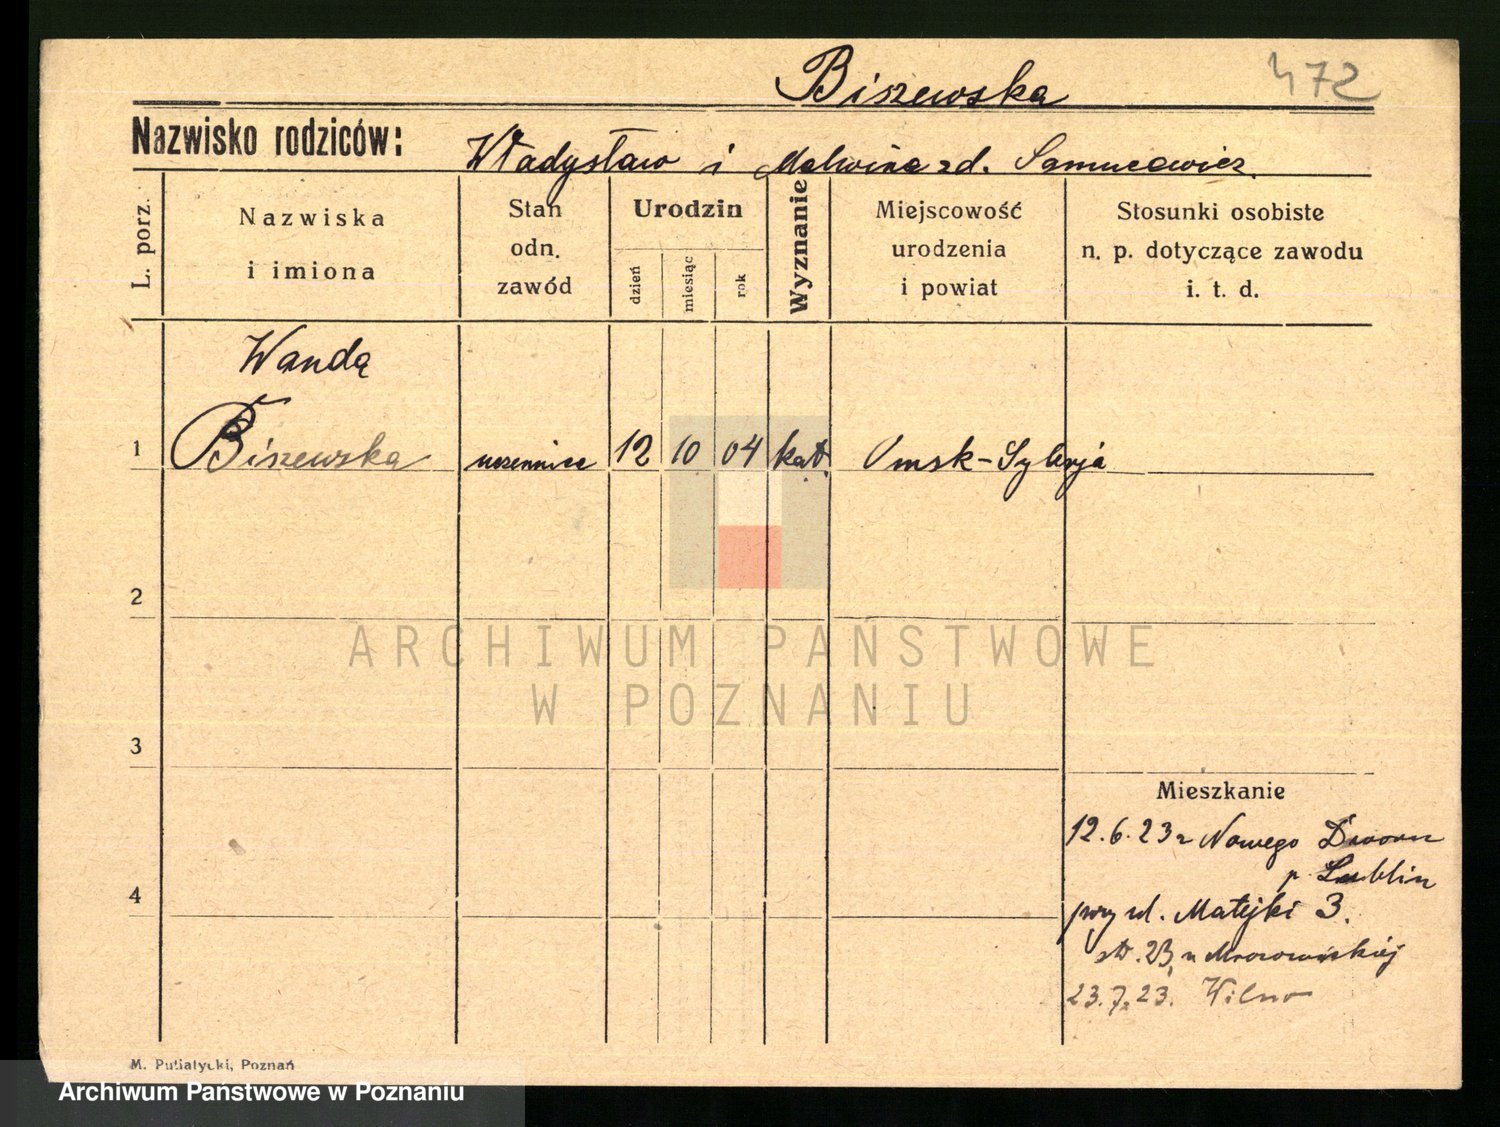 Biszewska 472
Nazwisko rodziców: Władysław i Malwina zd.
L. porz.
Nazwiska
i imiona
Stan
odn.
zawód
Urodzin
dzień
miesiąc
rok
Wyznanie
Miejscowość
urodzenia
i powiat
Stosunki osobiste
n. p. dotyczące zawodu
i. t. d.
Wanda
1 Biszewska uczennica 12 10 04 kat. Omsk-Syberja
2
ARCHIWUM PAŃSTWOWE
W POZNANIU
3
Mieszkanie
12.6.23 z Nowego Dworu
p. Lublin
4
przy ul. Matejki 3.
23.7.23. Wilno
M. Putiatycki, Poznań
Archiwum Państwowe w Poznaniu